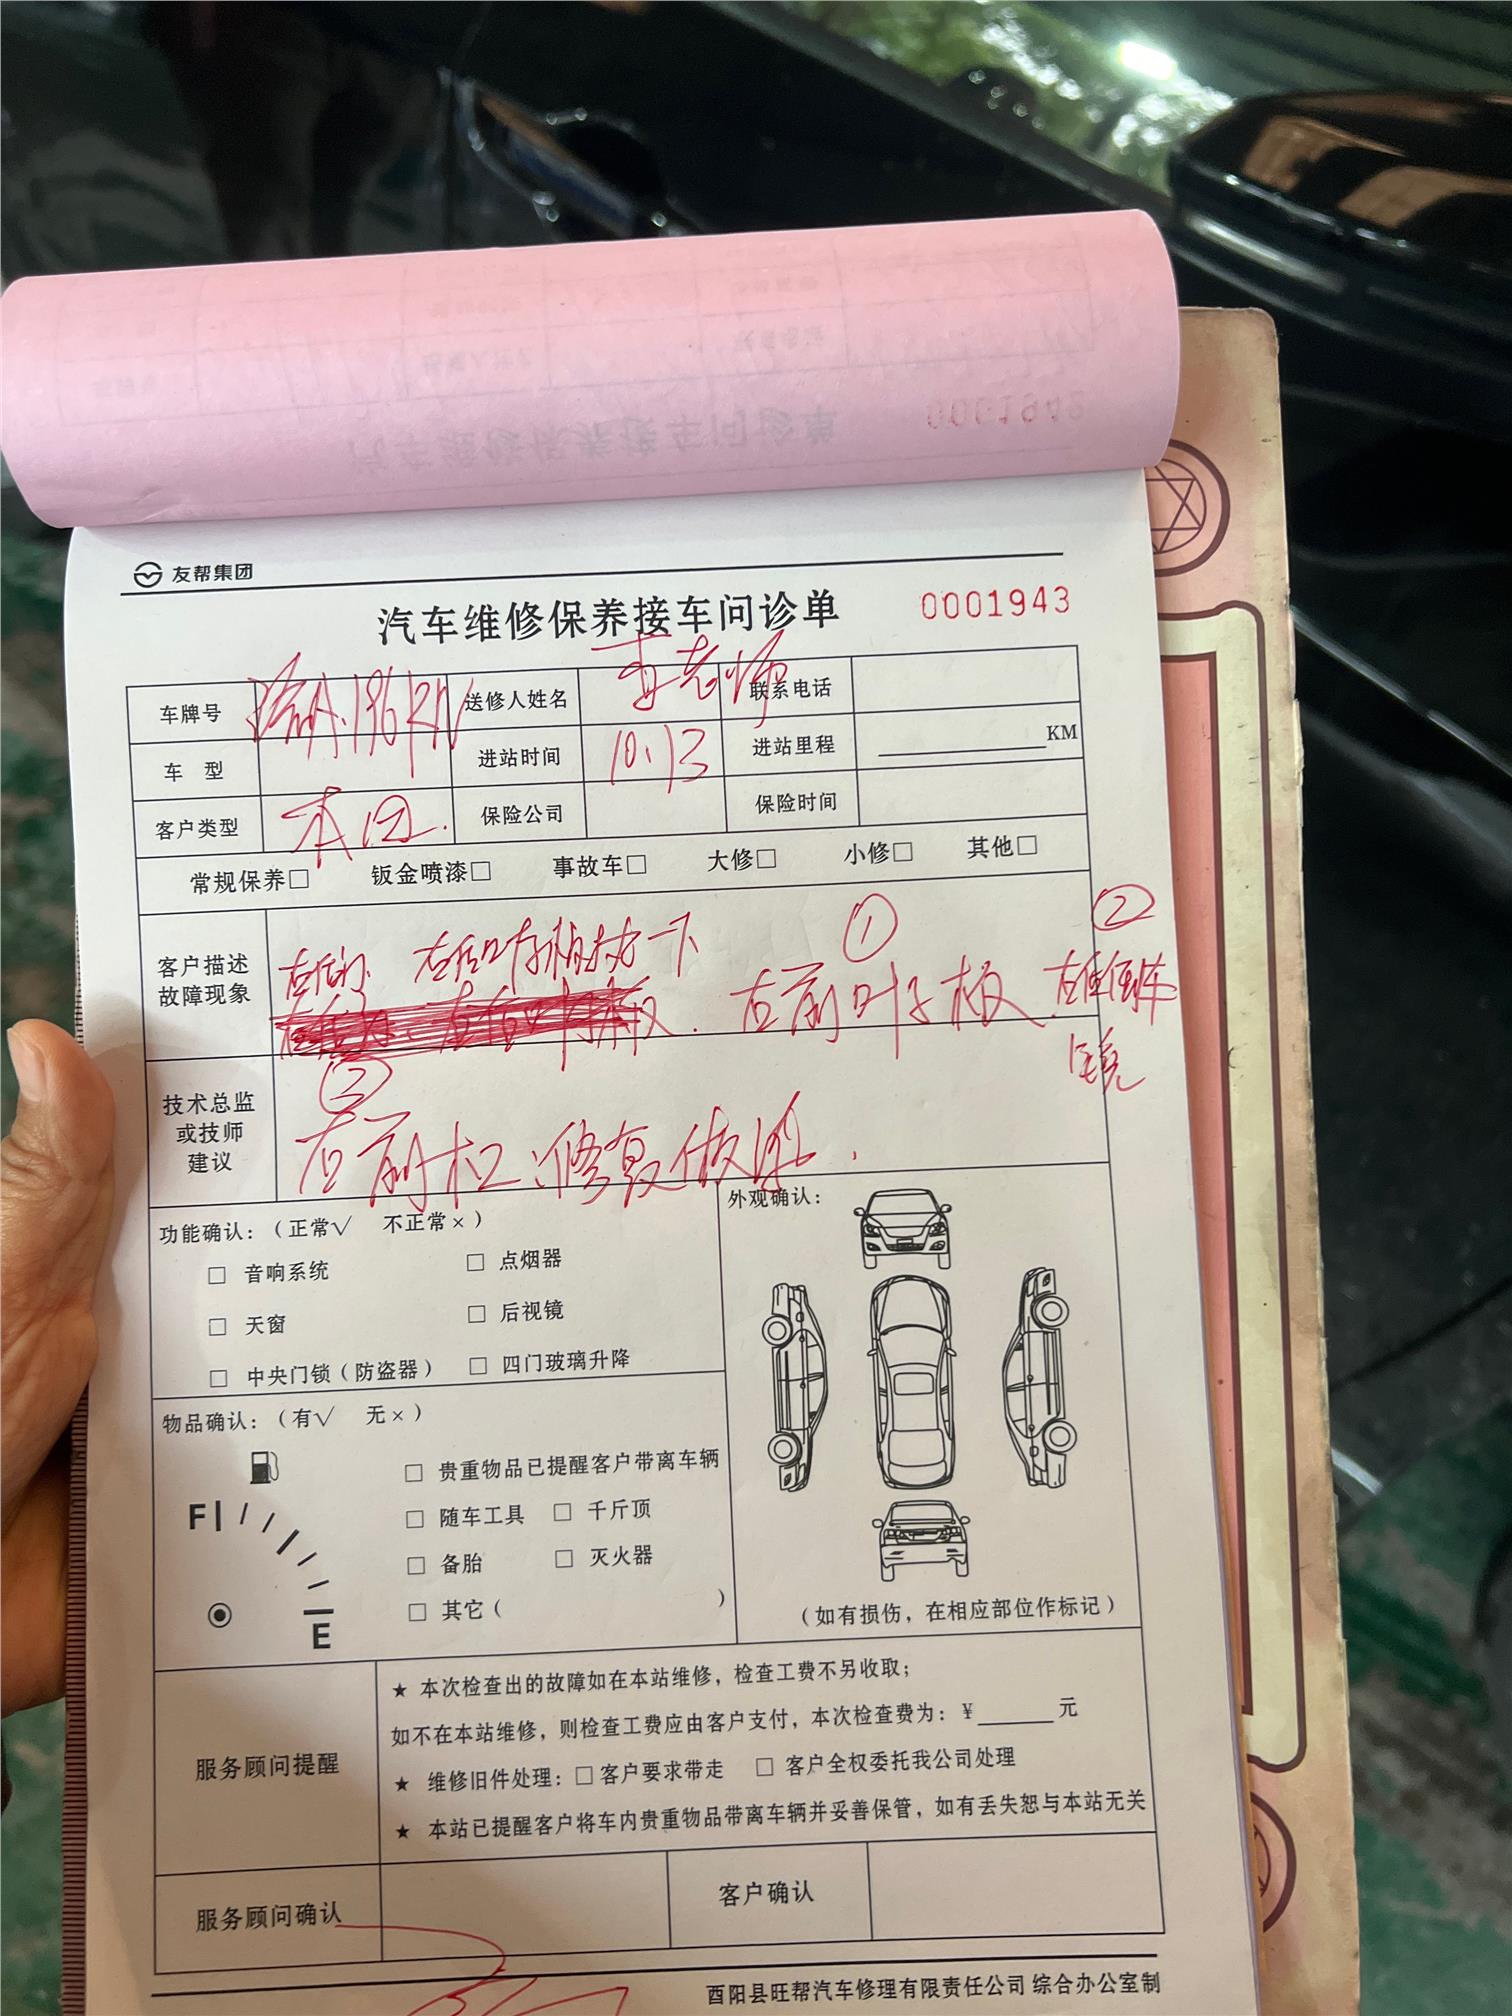 友帮集团
汽车维修保养接车问诊单 0001943
车牌号 渝A·196 送修人姓名 李老师 联系电话
车 型 进站时间 10.13 进站里程 KM
客户类型 本田. 保险公司 保险时间
常规保养□ 钣金喷漆□ 事故车□ 大修□ 小修□ 其他□
客户描述
故障现象
左后门. 一下
① 左前叶子板.
② 倒车
镜
技术总监
或技师
建议
③
左前杠:修复做漆.
功能确认：（正常√ 不正常×）
□ 音响系统 □ 点烟器
□ 天窗 □ 后视镜
□ 中央门锁（防盗器） □ 四门玻璃升降
外观确认：
（如有损伤，在相应部位作标记）
物品确认：（有√ 无×）
F
E
□ 贵重物品已提醒客户带离车辆
□ 随车工具 □ 千斤顶
□ 备胎 □ 灭火器
□ 其它（ ）
服务顾问提醒
★ 本次检查出的故障如在本站维修，检查工费不另收取；
如不在本站维修，则检查工费应由客户支付，本次检查费为：¥ 元
★ 维修旧件处理：□客户要求带走 □ 客户全权委托我公司处理
★ 本站已提醒客户将车内贵重物品带离车辆并妥善保管，如有丢失恕与本站无关
服务顾问确认 客户确认
酉阳县旺帮汽车修理有限责任公司 综合办公室制